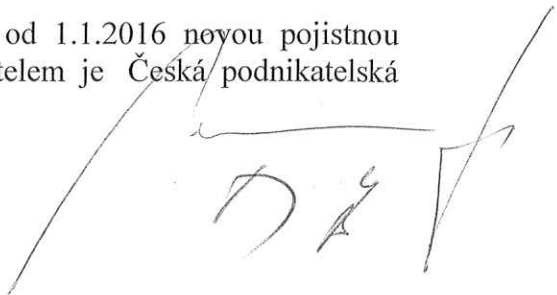 od 1.1.2016 novou pojistnou
telem je Česká podnikatelská